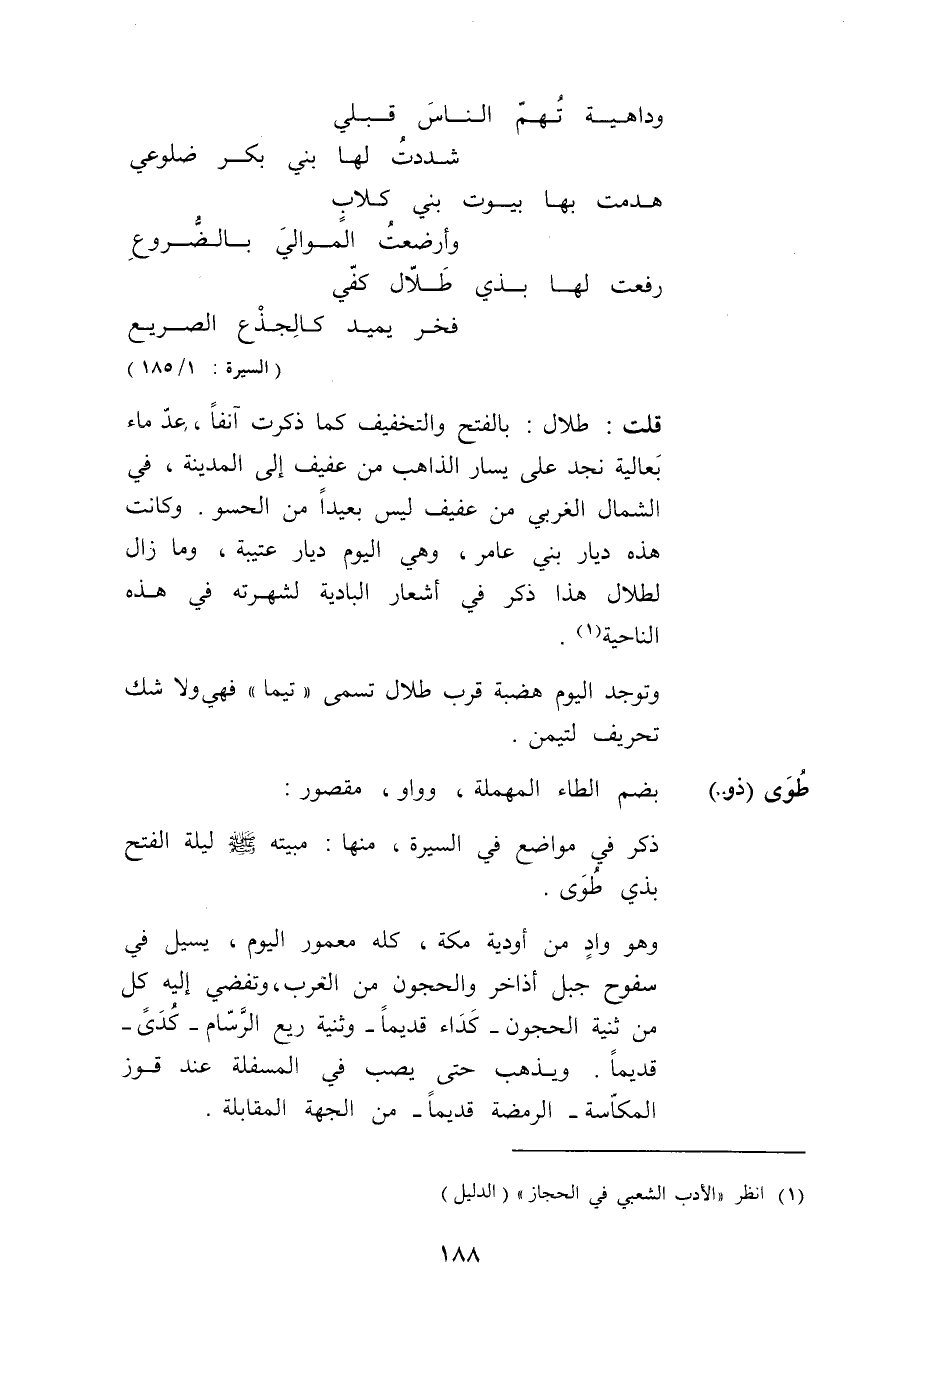 وداهيــة تُهـمّ النــاسَ قـبـلي
شـددتُ لهـا بني بكـر ضلوعي
هـدمت بهـا بيـوت بني كـلابٍ
وأرضعتُ المـوالي بـالـضُّـروعِ
رفعت لهـا بـذي طَـلّال كفّي
فخـر يميـد كـالجِذْع الصـريـع
( السيرة : ١٨٥/١ )
قلت : طلال : بالفتح والتخفيف كما ذكرت آنفاً ، عدّ ماء
بعالية نجد على يسار الذاهب من عفيف إلى المدينة ، في
الشمال الغربي من عفيف ليس بعيداً من الحسو . وكانت
هذه ديار بني عامر ، وهي اليوم ديار عتيبة ، وما زال
لطلال هذا ذكر في أشعار البادية لشهرته في هـذه
الناحية(١) .
وتوجد اليوم هضبة قرب طلال تسمى « تيما » فهي ولا شك
تحريف لتيمن .
طُوَى (ذو..) بضم الطاء المهملة ، وواو ، مقصور :
ذكر في مواضع في السيرة ، منها : مبيته ﷺ ليلة الفتح
بذي طُوَى .
وهو وادٍ من أودية مكة ، كله معمور اليوم ، يسيل في
سفوح جبل أذاخر والحجون من الغرب، وتفضي إليه كل
من ثنية الحجون ـ كَدَاء قديماً ـ وثنية ريع الرَّسّام ـ كُدَىً ـ
قديماً . ويـذهب حتى يصب في المسفلة عند قـوز
المكّاسة ـ الرمضة قديماً ـ من الجهة المقابلة .
(١) انظر «الأدب الشعبي في الحجاز» ( الدليل )
١٨٨